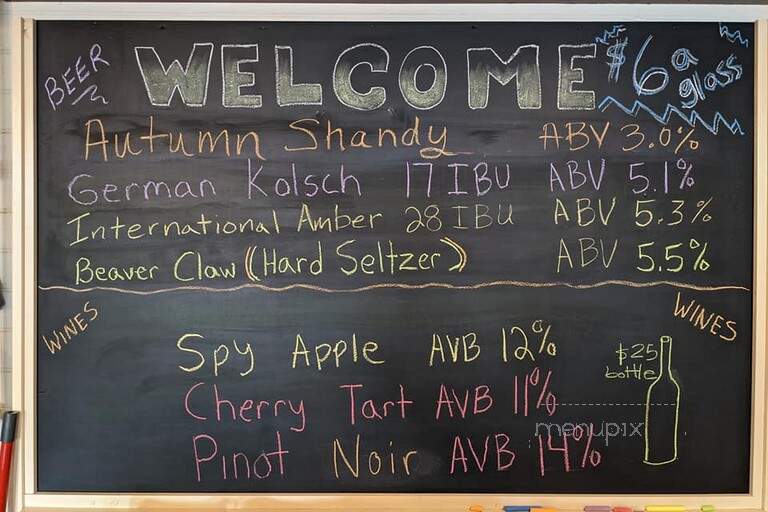 BEER
WELCOME
$6 a glass
Autumn Shandy ABV 3.0%
German Kolsch 17 IBU ABV 5.1%
International Amber 28 IBU ABV 5.3%
Beaver Claw (Hard Seltzer) ABV 5.5%
WINES
WINES
Spy Apple AVB 12%
$25 bottle
Cherry Tart AVB 11%
Pinot Noir AVB 14%
menupix